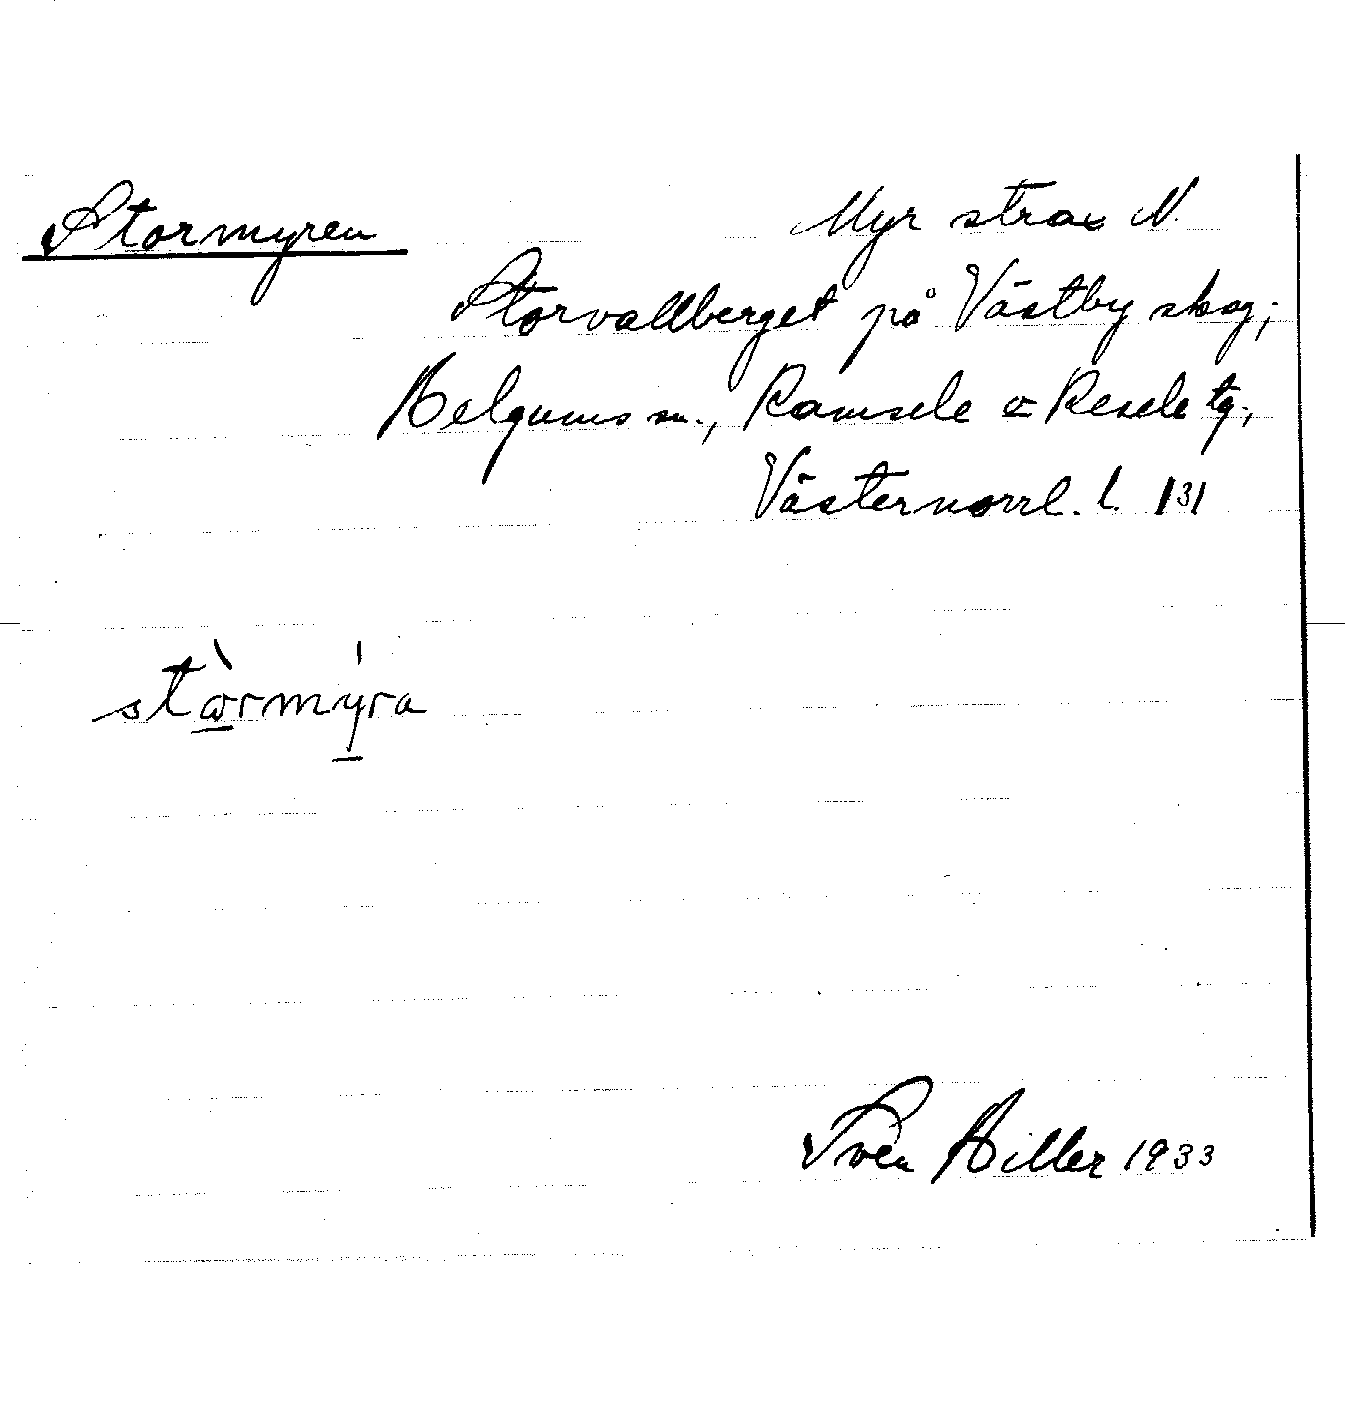 Stormyren Myr strax N.
Storvallberget på Västby skog;
Helgums sn., Ramsele & Resele tg.,
Västernorrl. l. 131
stòrmýra
Sven Hiller 1933